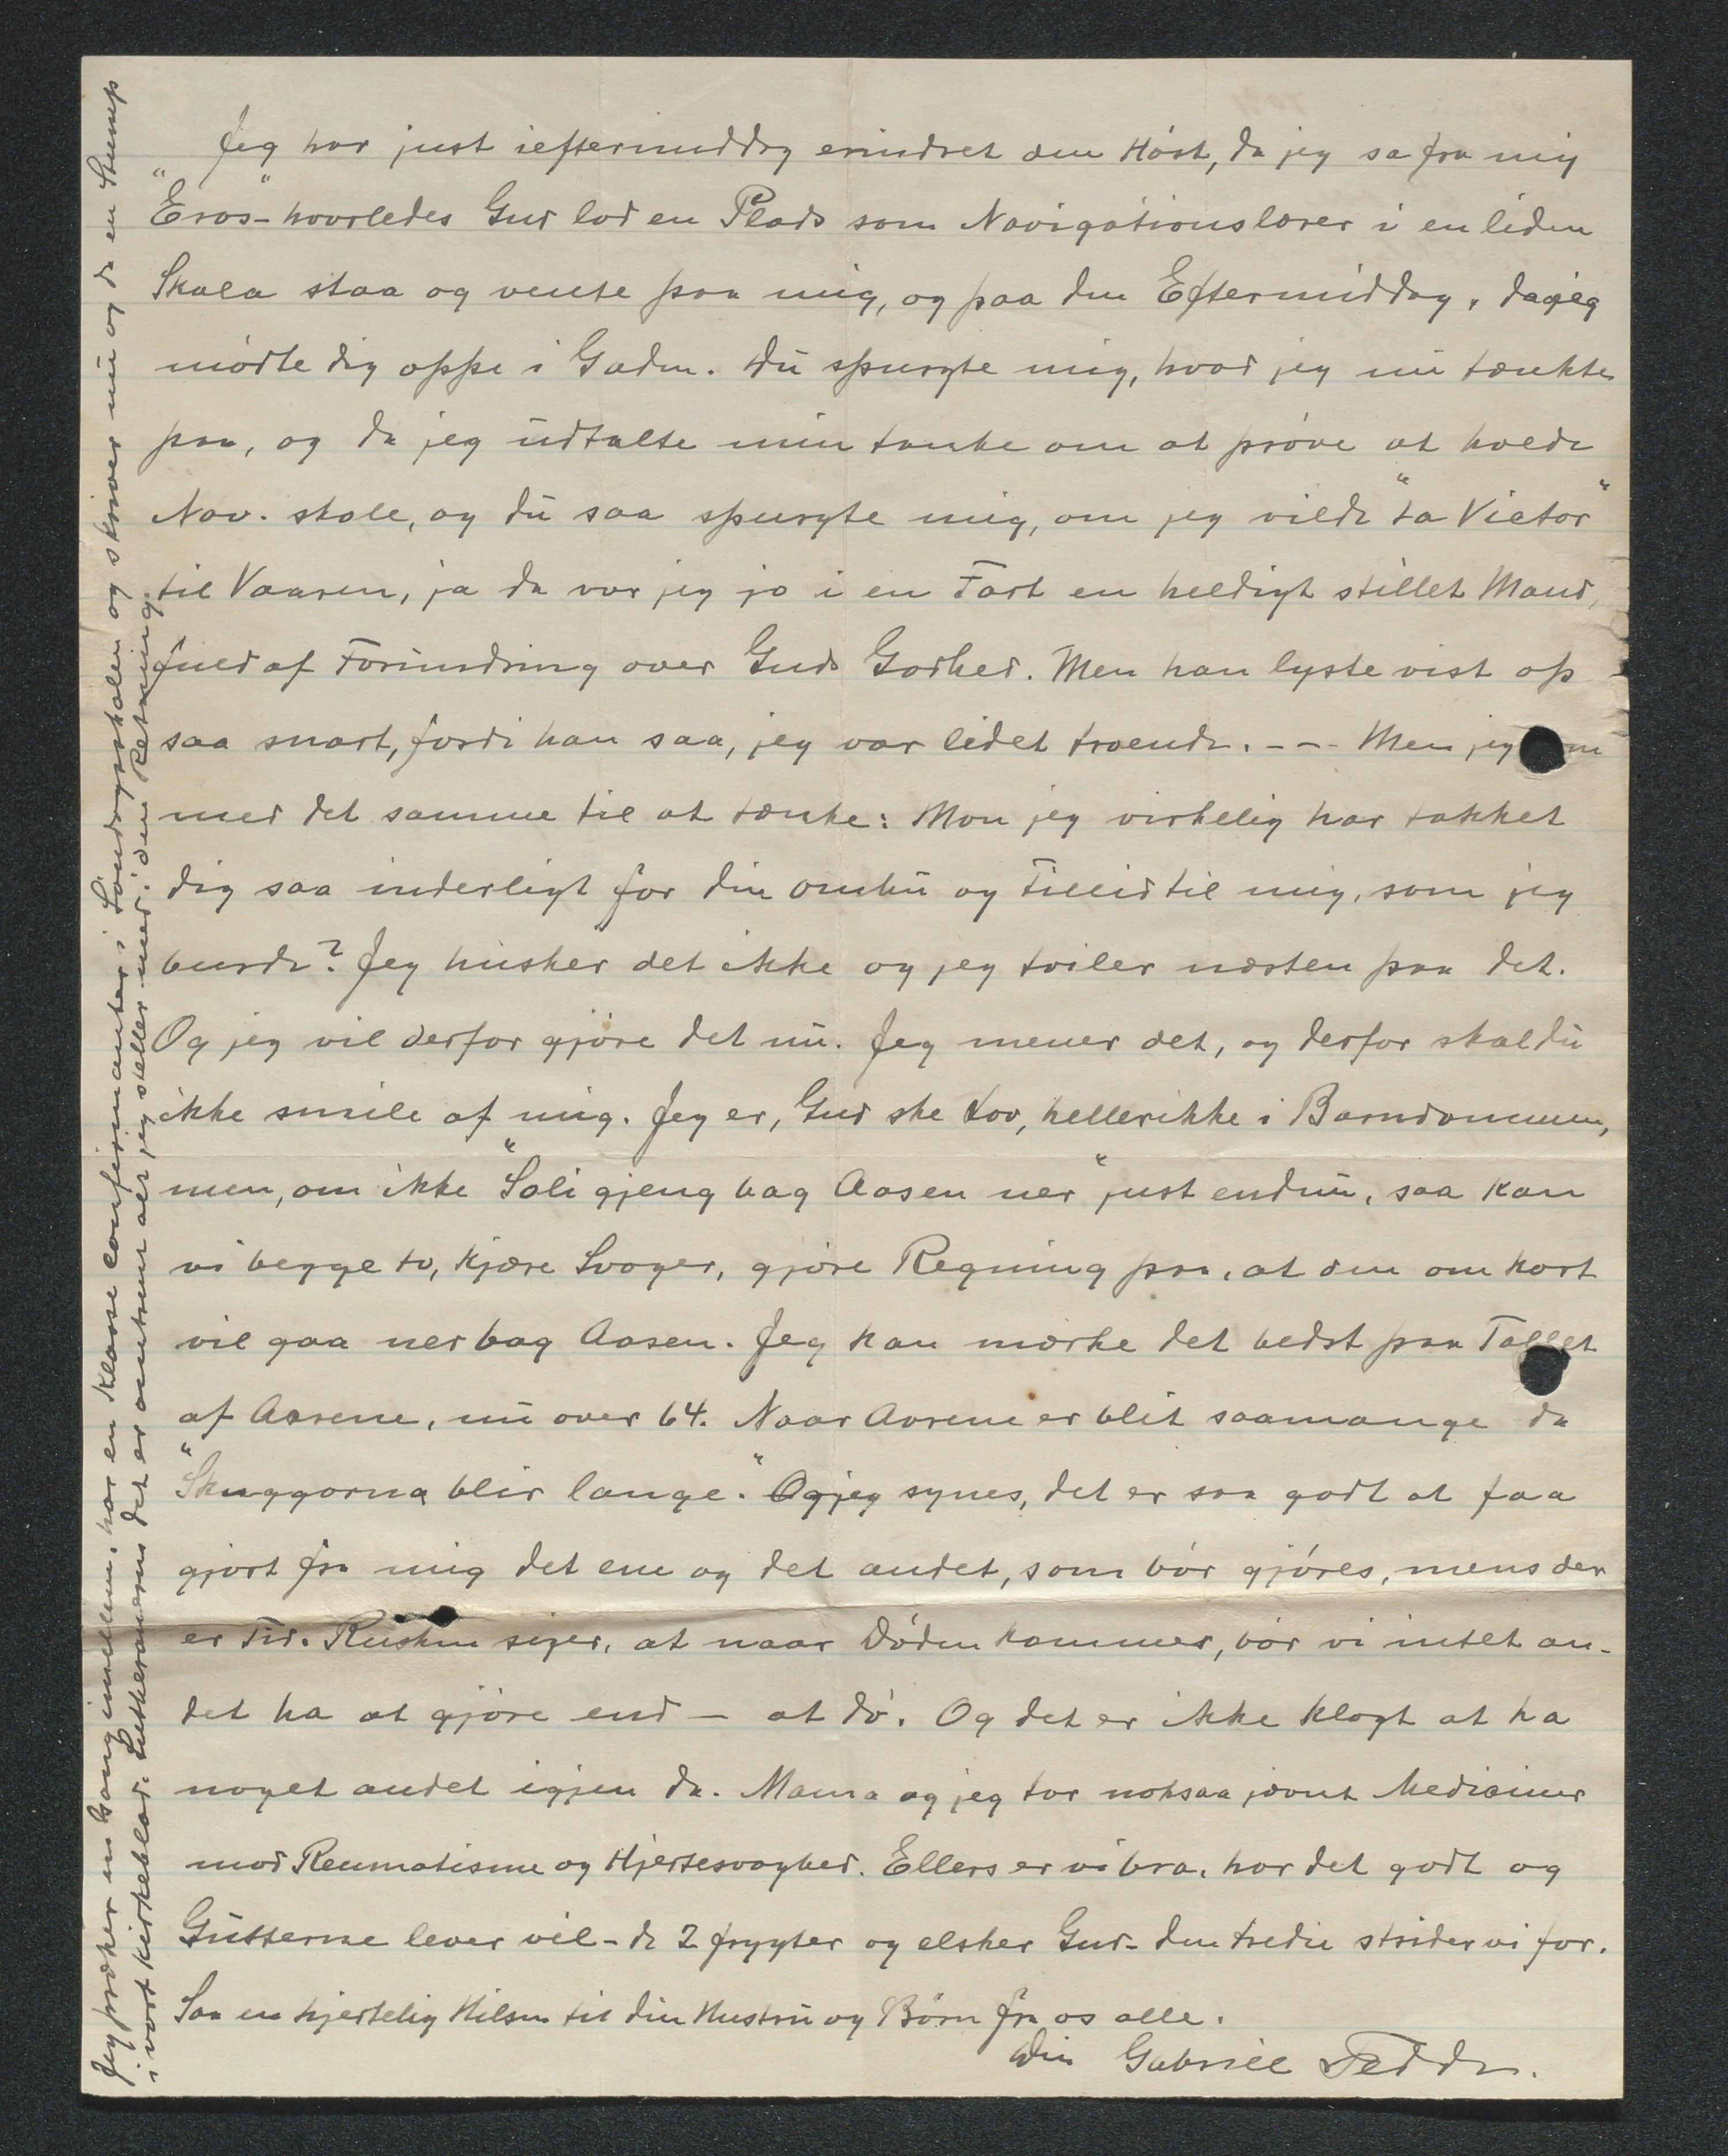 Jeg har just ieftermiddag erindret den Høst, da jeg sa fra mig
"Eros" - hvorledes Gud lod en Plads som Navigationslærer i en liden
Skola staa og vente paa mig, og paa den Eftermiddag, da jeg
mødte dig oppe i Gaden. Du spurgte mig, hvad jeg nu tænkte
paa, og da jeg udtalte min tanke om at prøve at holde
Nav. skole, og du saa spurgte mig, om jeg vilde "ta Victor"
til Vaaren, ja da var jeg jo i en Fart en heldigt stillet Mand,
fuld af Forundring over Guds Godhed. Men han lyste vist op
saa snart, fordi han saa, jeg var lidet troende. --- Men jeg
med det samme til at tænke: Mon jeg virkelig har takket
dig saa inderligt for din omhu og Tillid til mig, som jeg
burde? Jeg husker det ikke og jeg tviler næsten paa det.
Og jeg vil derfor gjøre det nu. Jeg mener det, og derfor skal du
ikke smile af mig. Jeg er, Gud ske Lov, heller ikke i Barndommen,
men, om ikke "Soli gjeng bag Aasen ner" just endnu, saa kan
vi begge to, kjære Svoger, gjøre Regning paa, at den om kort
vil gaa ner bag Aasen. Jeg kan mærke det bedst paa Tallet
af Aarene, nu over 64. Naar Aarene er blit saamange da
"Skuggorna blir lange." Og jeg synes, det er saa godt at faa
gjort fra mig det ene og det andet, som bør gjøres, mens der
er Tid. Ruskin siger, at naar Døden kommer, bør vi intet an-
det ha at gjøre end — at dø. Og det er ikke klogt at ha
noget andet igjen da. Mama og jeg tar noksaa jævnt Mediciner
mod Reumatisme og Hjertesvaghed. Ellers er vi bra, har det godt og
Gutterne lever vel - de 2 frygter og elsker Gud - den tredie strider vi for.
Saa en hjertelig Hilsen til din Hustru og Børn fra os alle.
Din Gabriel Fedde.
Jeg præker en Gang imellem, har en Klasse confirmanter i Søndagsskolen og skriver nu og da en Stump
i vort Kirkeblad: Lutheraneren. Det er omtrent alt jeg steller med i den Retning.